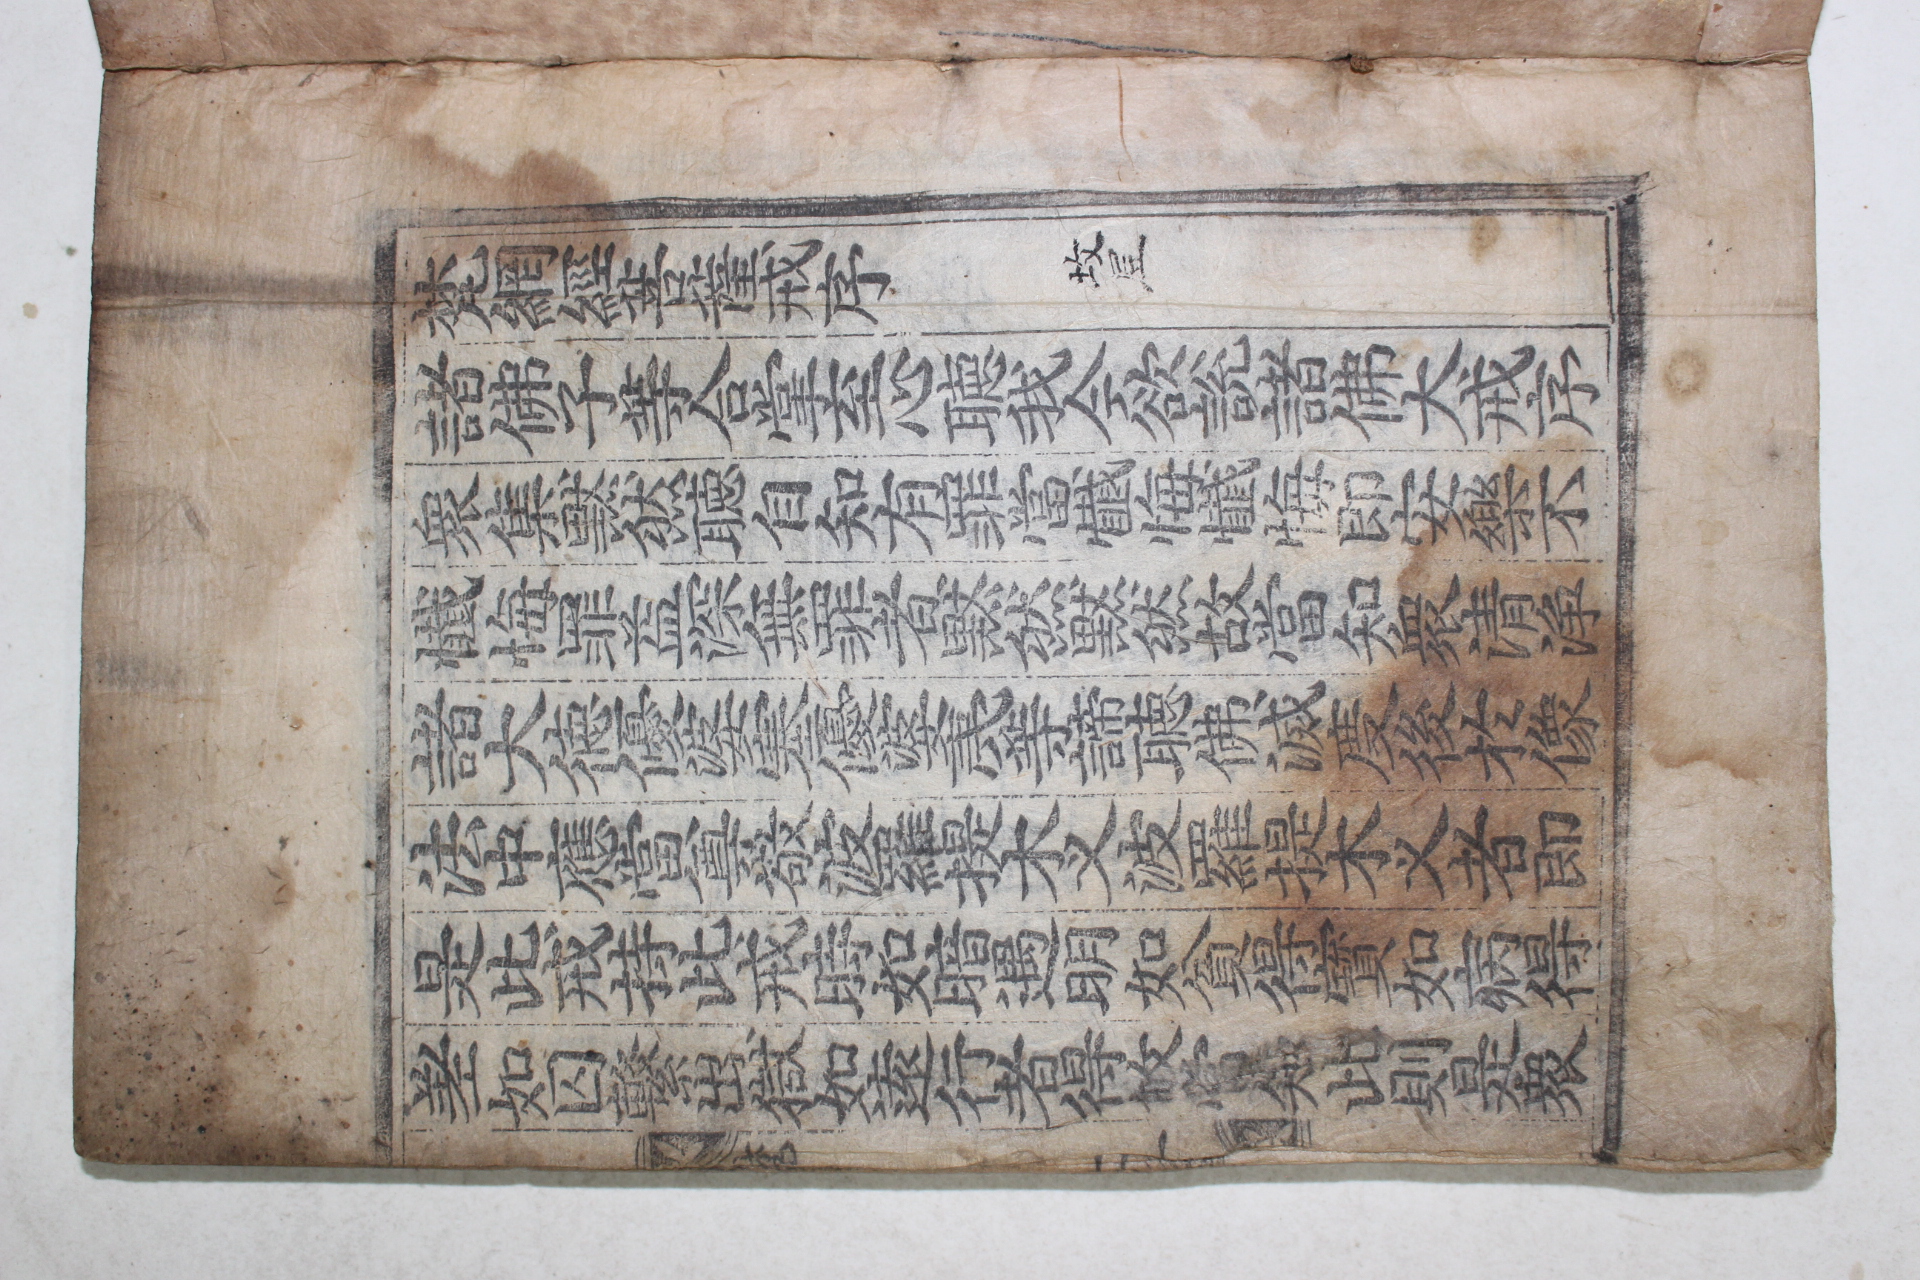 梵網經菩薩戒序
諸佛子等合掌至心聽我今欲說諸佛大戒序
衆集默然聽自知有罪當懺悔懺悔即安樂不
懺悔罪益深無罪者默然默然故當知衆清淨
諸大德優婆塞優婆夷等諦聽佛滅度後於像
法中應當尊敬波羅提木义波羅提木义者即
是此戒持此戒時如暗遇明如貧得寶如病得
差如囚繫出獄如遠行者得故當知此則是衆